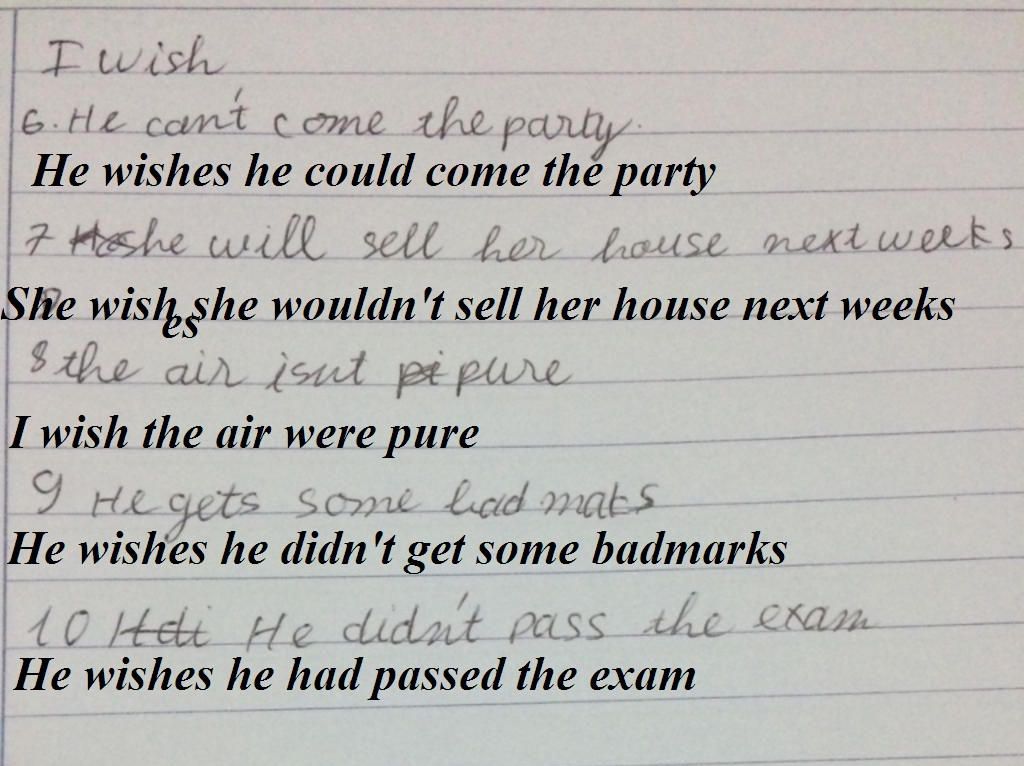 I wish
6. He can't come the party.
He wishes he could come the party
7 she will sell her house next weeks
She wishes she wouldn't sell her house next weeks
8 the air isnt pure
I wish the air were pure
9 He gets some bad maks
He wishes he didn't get some badmarks
10 He didn't pass the exam
He wishes he had passed the exam